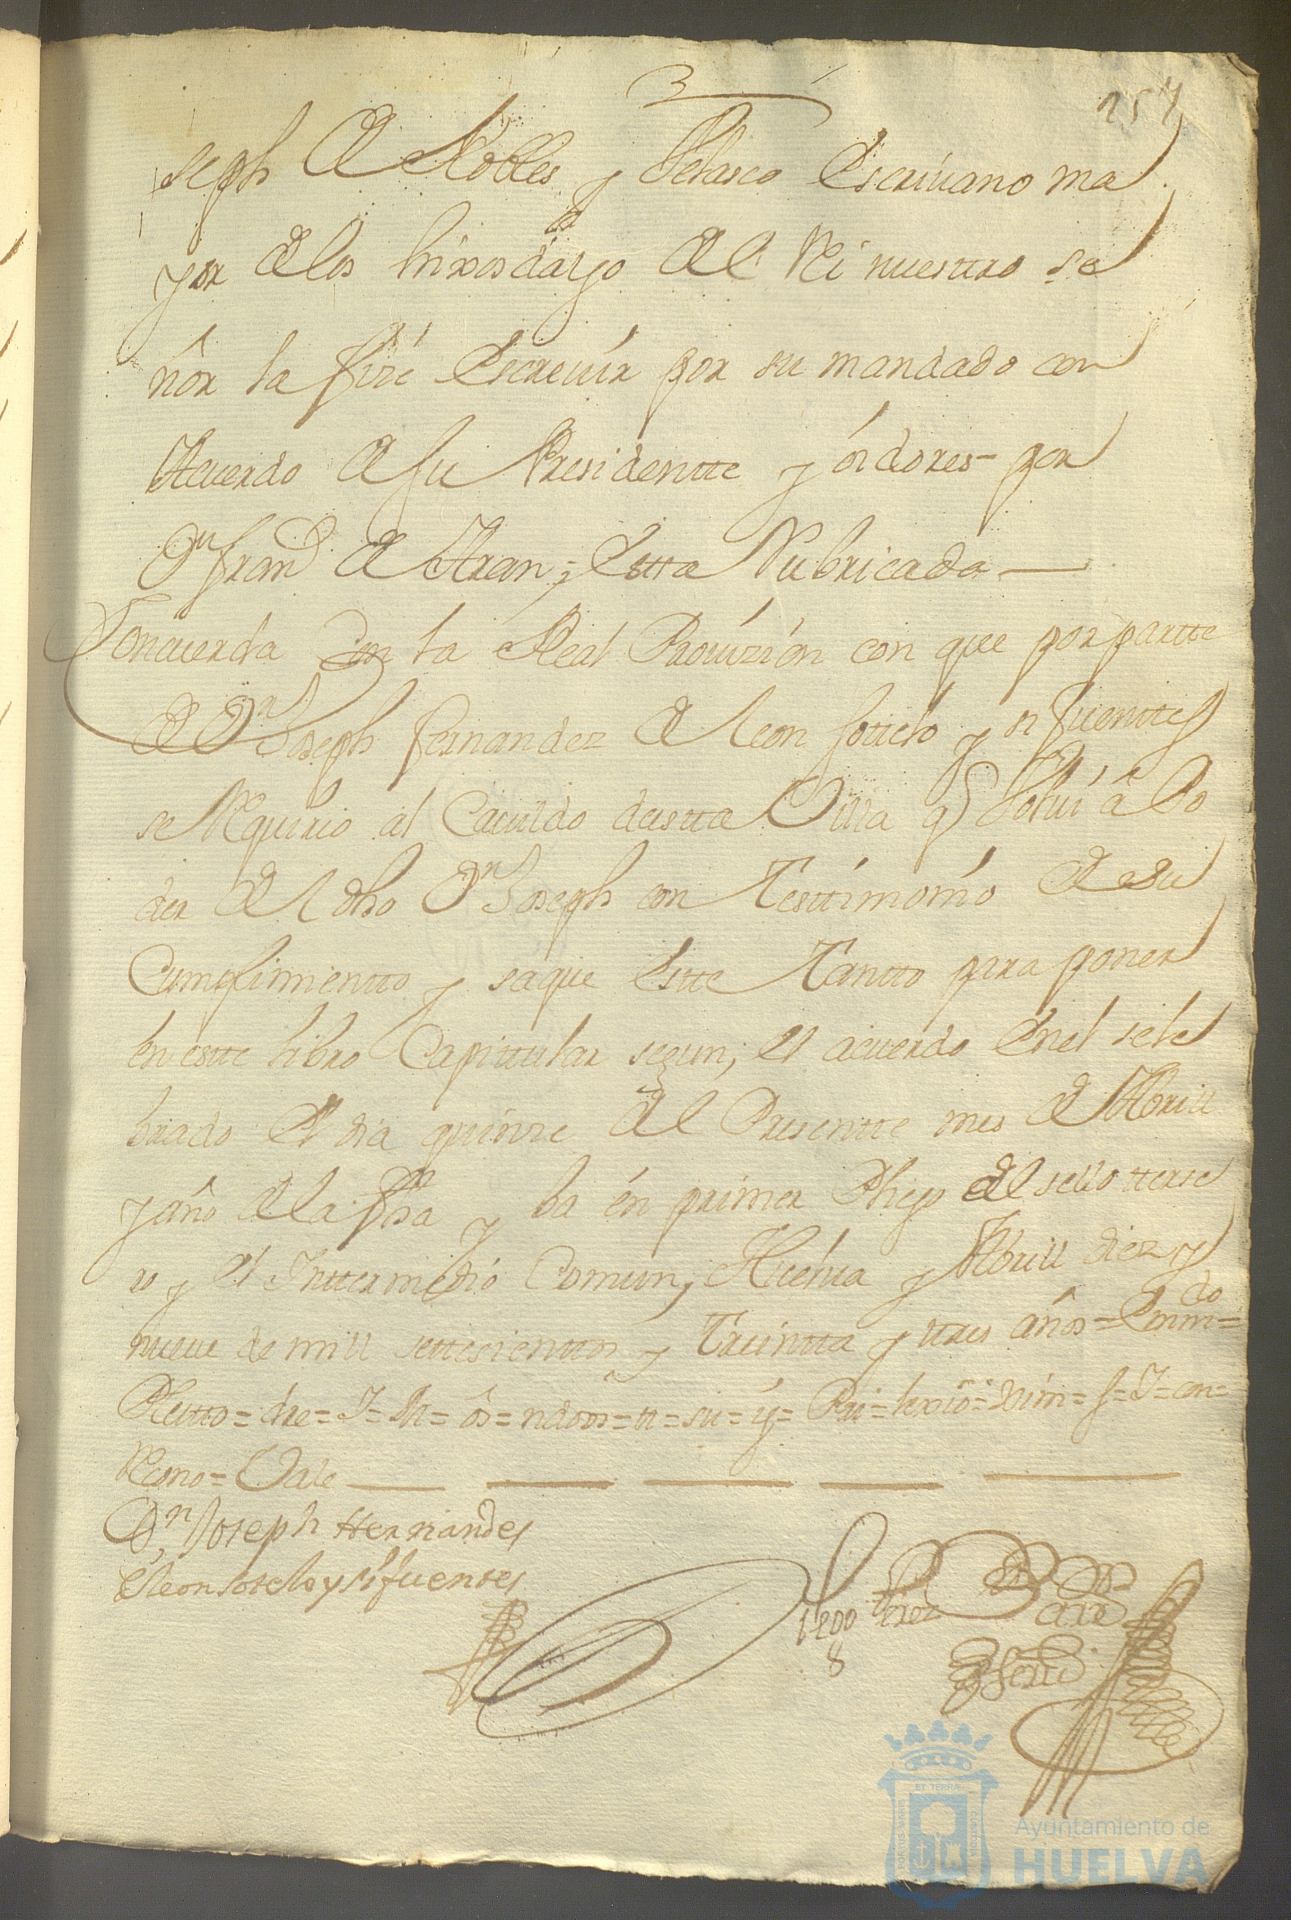 3
257
seph de Robles y Velasco Escrivano ma
yor de los hixosdalgo del Rei nuestro se
ñor la fize Escrevir por su mandado con
Acuerdo de su Presidentte y oidores por
Dn. Frand de Aran; Estta Rubricada
Concuerda Con la Real Provizion con que por partte
de Dn. Joseph Fernandez de leon sottelo y sifuenttes
se Requirio al Cavildo de estta Villa q Volvi â Po
der del dho Dn. Joseph con Testtimonio de su
Cumplimientto y saque Estte Tantto para poner
en estte libro Capittular segun el acuerdo En el sele
brado El dia quinze del Presentte mes de Abrill
y año de la fha y ba en primer Pliego del sello terse
ro y el Inttermedio Comun, Huelva y Abrill diez y
nueve de mill settesienttos y Treintta y ttres años = Enmdo =
Pleitto = dre =
Recono = Vale
Dn. Joseph Hernandes
de leon sotelo y sifuentes
Perez
Ayuntamiento de
HUELVA